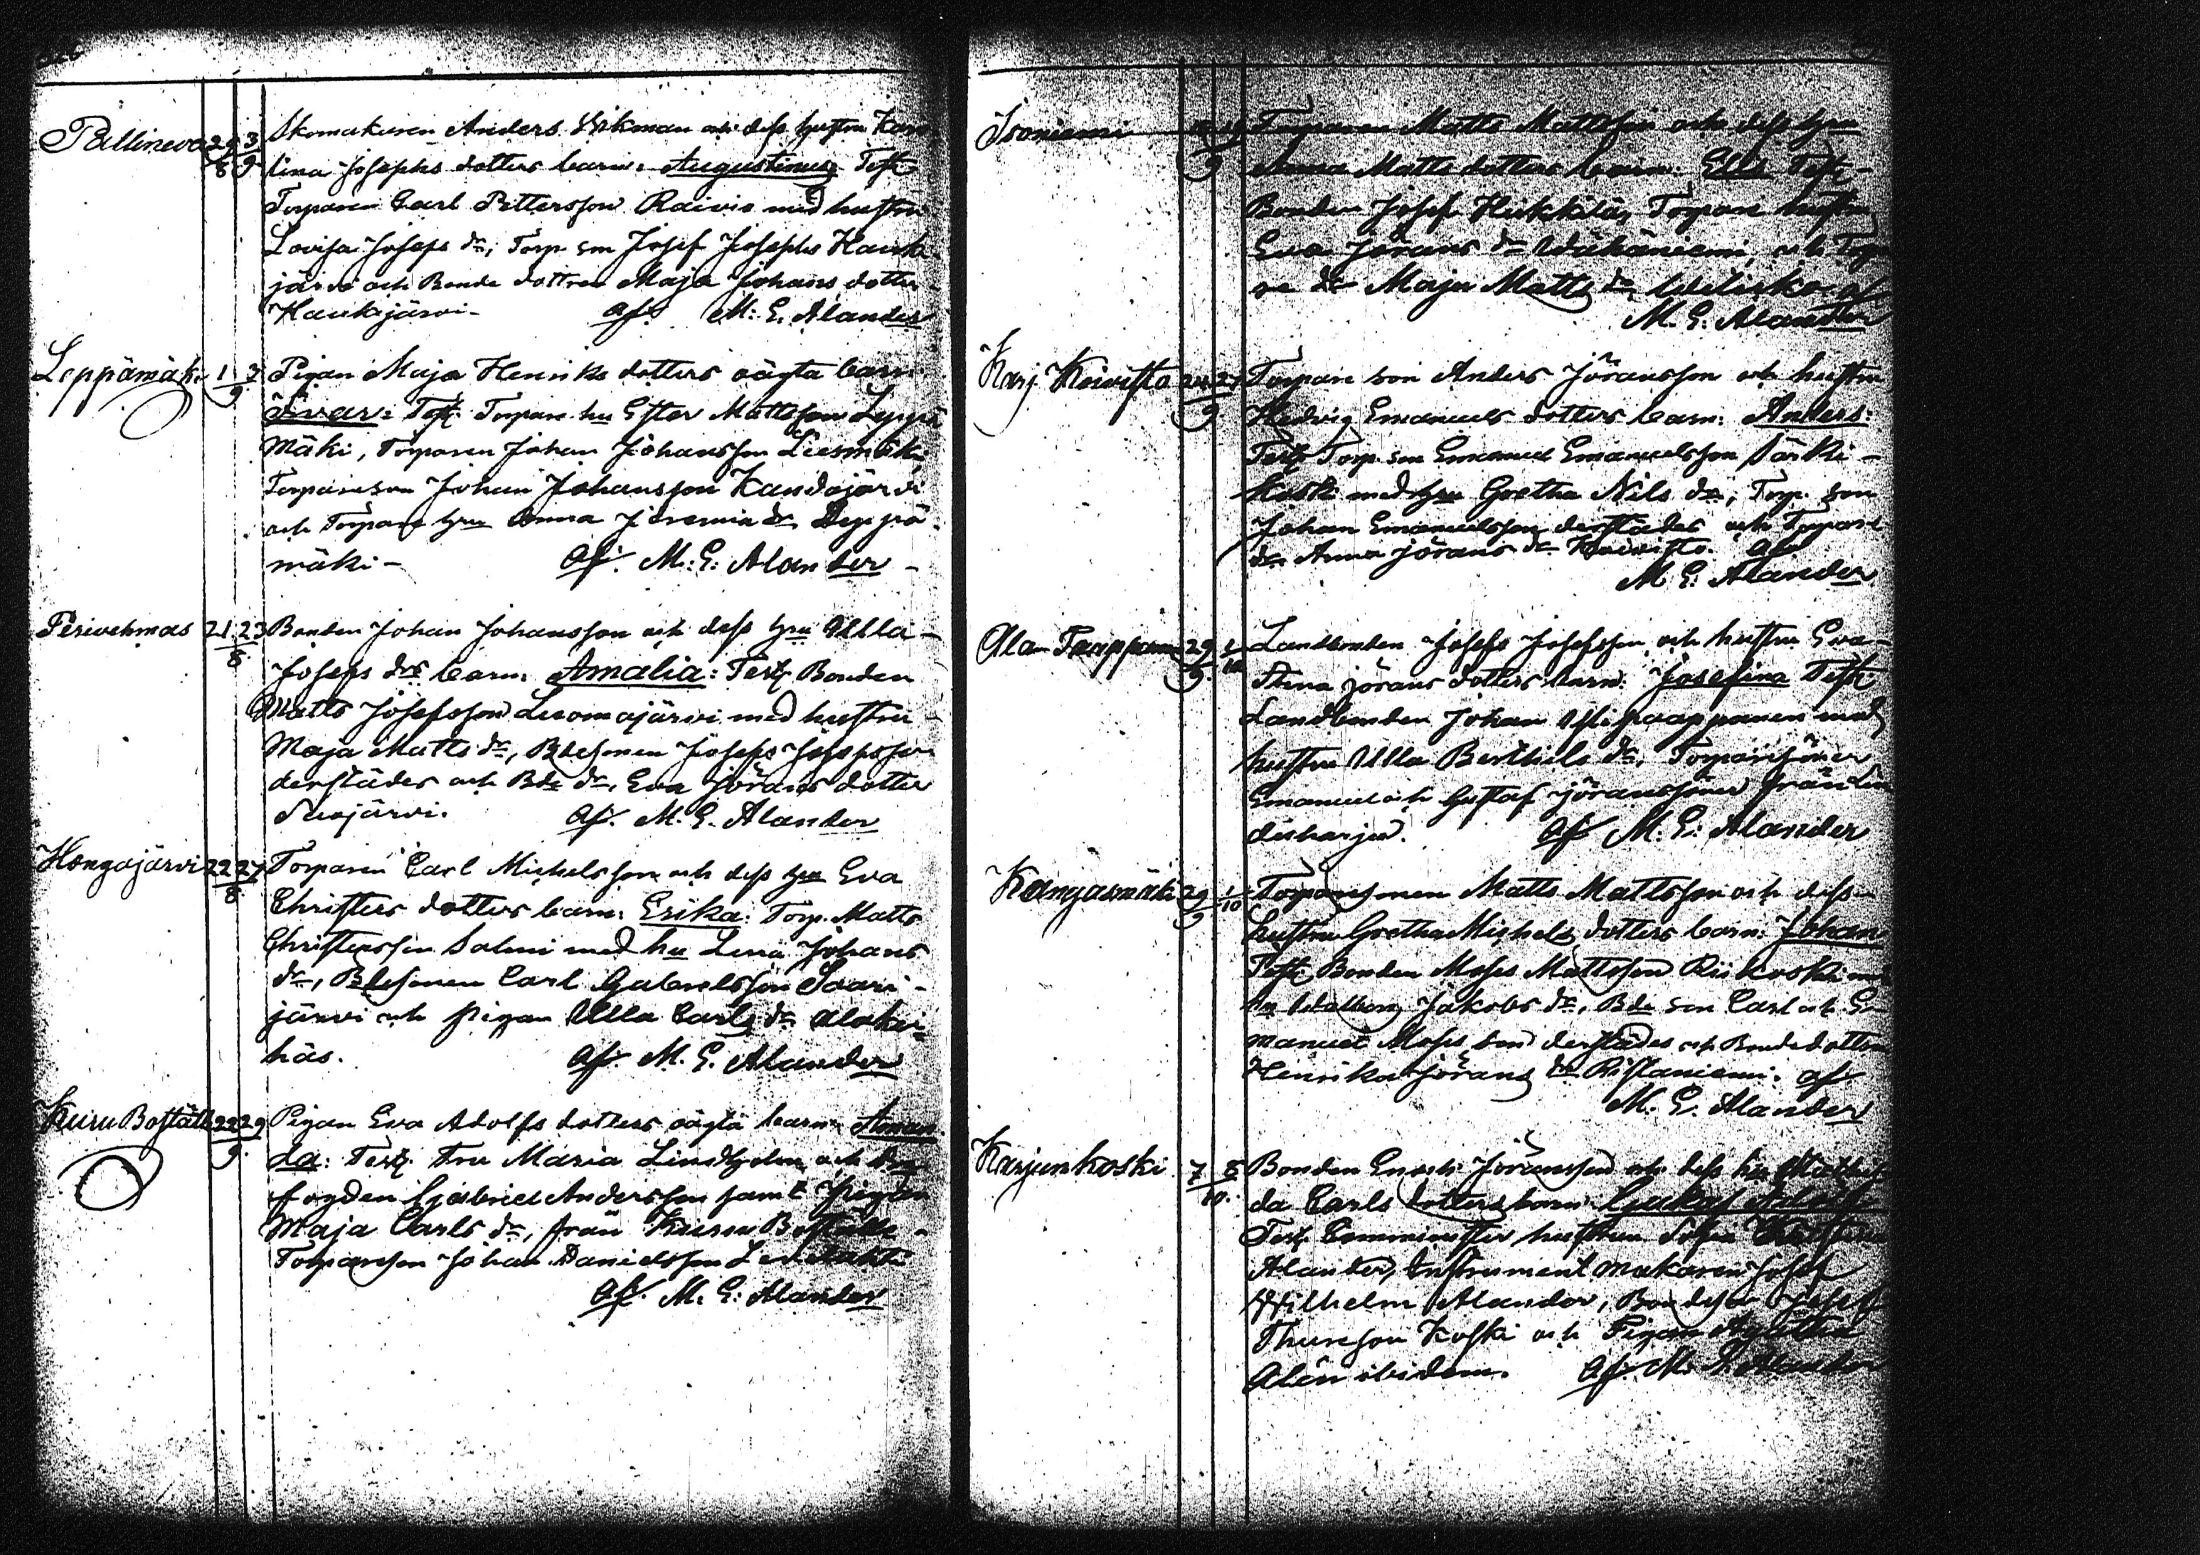 Pallineva 29/8 3/9 Skomakaren Anders Wikman och dess hustru Karo
lina Josephs dotters barn: Augustinus Test
Torparen Carl Pettersson Raivio med hustru
Lovisa Josefs dr, Torp. son Josef Josephs Hauki
järvi och Bonde dottren Maja Johans dotter
Haukijärvi - af. M. E. Alander
Leppämäki 1 3/9 Pigan Maja Henriks dotters oägta barn
Ivar: Test. Torpare hu Ester Mattsson Leppä
mäki, Torparen Johan Johansson Liesmäki
Torpareson Johan Johansson Kandojärvi
och Torpare hru Anna Jeremia dr Leppä-
mäki - af. M. E. Alander -
Perivehmas 21 23/8 Bonden Johan Johansson och dess hru Ulla
Josefs drs barn: Amalia: Test Bonden
Matts Josefsson Luomajärvi med hustru
Maja Matts dr, Bdesonen Josefs Josepsson
derstädes och Bde dr. Eva Jörans dotter
Suojärvi. af. M. E. Alander
Hongojärvi 22 27/8 Torparen Carl Michelsson och dess hru Eva
Christers dotters barn: Erika: Torp. Matts
Christersson Salmi med hu Lena Johans
dr, Bdesonen Carl Gabrielsson Saari-
järvi och pigan Ulla Carls dr Alaken-
häs. af. M. E. Alander
Kuru Boställe 22 29/9 Pigan Eva Adolfs dotters oägta barn Aman
da: Test. Fru Maria Lindholm och
fogden Gabriel Andersson samt Pigan
Maja Carls dr, från Kuru Boställe
Torpareson Johan Danielsson
af. M. E. Alander
Isoniemi 9 Torparen Matts Mattsson och dess hru
Anna Matts dotters barn: Test
Bonden Josef Heikkilä, Torpare hustru
Eva Jörans dr Wähäniemi, och Torp
re dr Maja Matts dr af
M. E. Alander
Karj Koivisto 24 27/9 Torpare son Anders Jöransson och hustru
Hedvig Emanuels dotters barn: Anders:
Test Torp. son Emanuel Emanuelsson Särki-
koski med hru Gretha Nils dr, Torp. son
Johan Emanuelsson derstädes och Torpare
dr Anna Jörans dr Koivisto. af
M. E. Alander
Ala Paappanen 29/9 1/10 Landbonden Josefs Josefsson och hustru Eva
Stina Jörans dotters barn: Josefina Test
Landbonden Johan Ylipaappanen med
hustru Ulla Berthils dr, Torparesöner
Emanuel och Gustaf Jöranssöner från
disharju. af M. E. Alander
Kangasmäki 29/9 1/10 Torparesonen Matts Mattsson och dess
hustru Gretha Michels dotters barn: Johan
Test Bonden Moses Mattsson Riikoski med
hu Walborg Jakobs dr, Bde son Carl och E-
manuel Moses son derstädes och Bondedottren
Henrika Jörans dr Ristaniemi. af
M. E. Alander
Karjunkoski 7 8/10 Bonden Enoch Jöransson och dess hu Mathil
da Carls dotters barn:
Test Comminister hustrun Sofia
Alander, Instrument makaren Josef
Wilhelm Alander, Bondeson Josef
Thuresson Koski och Pigan Agatha
Alén ibidem. af. M. E. Alander